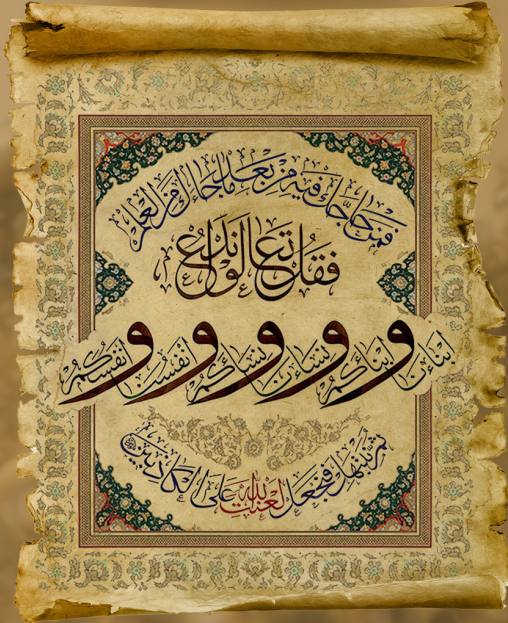 فمن حاجك فيه من بعد ما جاءك من العلم
فقل تعالوا ندع
أبناءنا و أبناءكم و نساءنا و نساءكم و أنفسنا و أنفسكم
ثم نبتهل فنجعل لعنت الله على الكاذبين